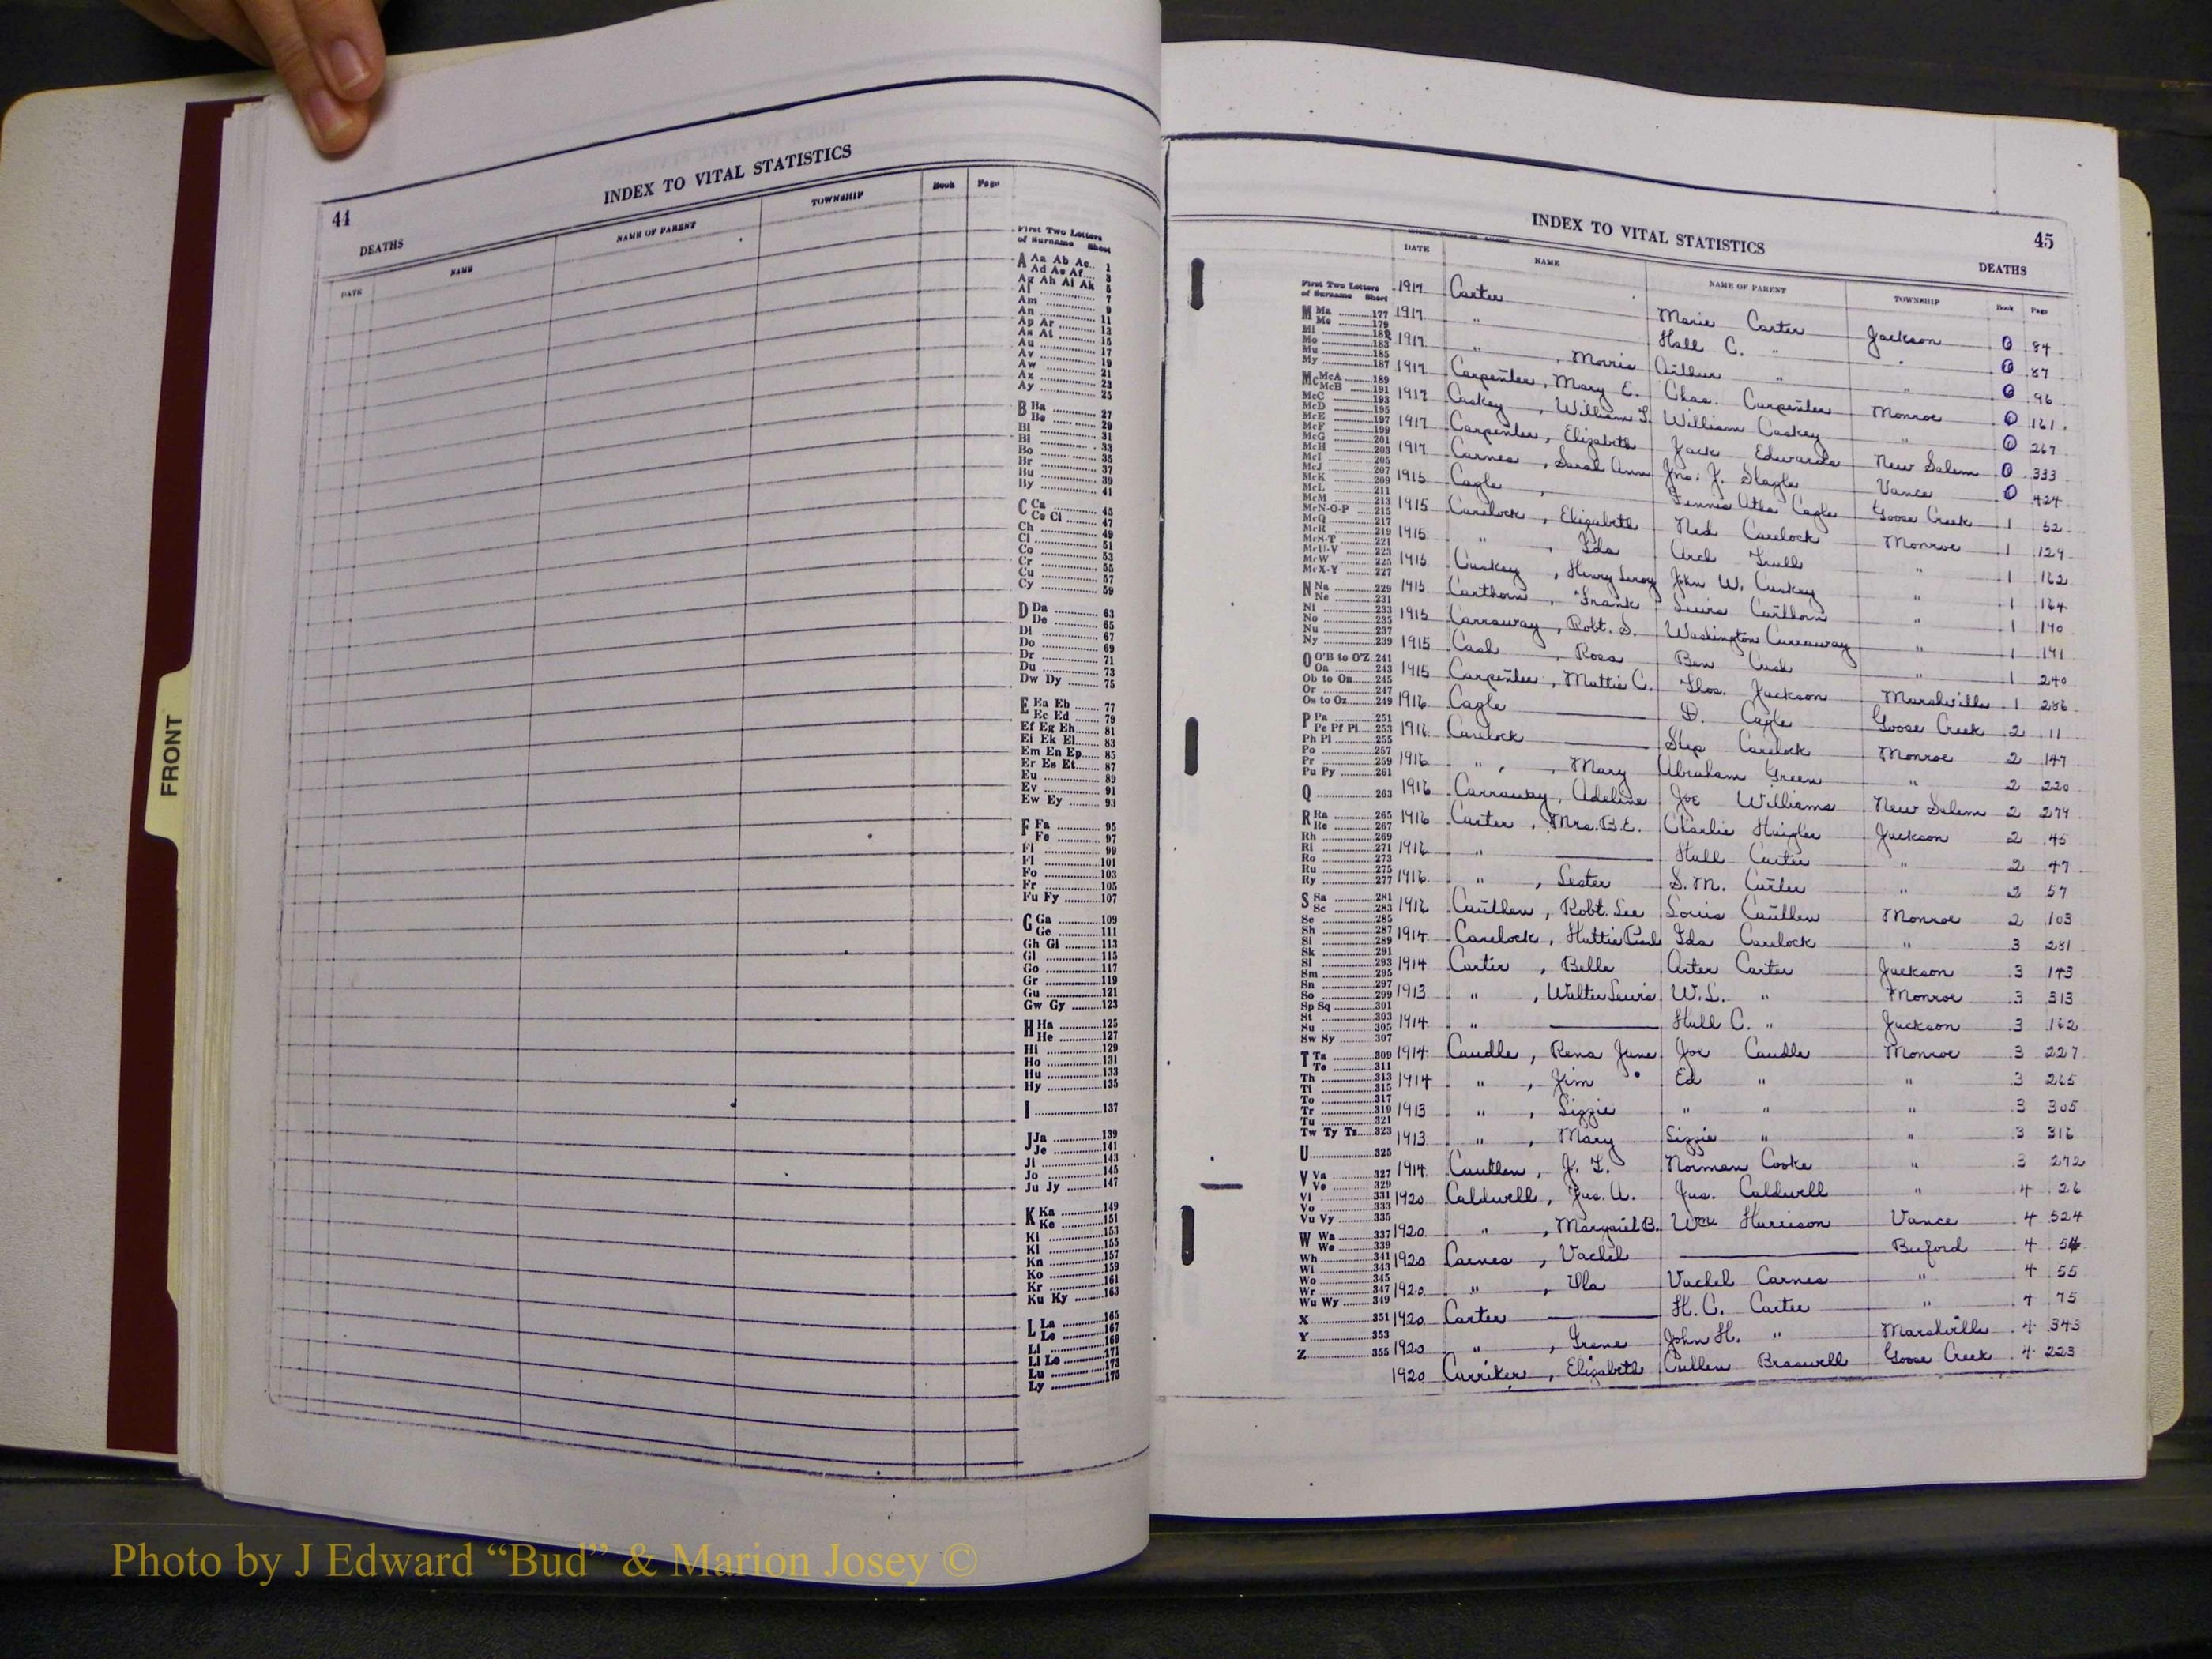 44
INDEX TO VITAL STATISTICS
DEATHS
DATE NAME NAME OF PARENT TOWNSHIP Book Page
First Two Letters
of Surname Sheet
A Aa Ab Ac.. 1
Ad Ae Af.... 3
Ag Ah Ai Ak 5
Al 7
Am 9
An 11
Ap Ar 13
As At 15
Au 17
Av 19
Aw 21
Ax 23
Ay 25
B Ba 27
Be 29
Bi 31
Bl 33
Bo 35
Br 37
Bu 39
By 41
C Ca 45
Ce Ci 47
Ch 49
Cl 51
Co 53
Cr 55
Cu 57
Cy 59
D Da 63
De 65
Di 67
Do 69
Dr 71
Du 73
Dw Dy 75
E Ea Eb 77
Ec Ed 79
Ef Eg Eh 81
Ei Ek El 83
Em En Ep 85
Er Es Et 87
Eu 89
Ev 91
Ew Ey 93
F Fa 95
Fe 97
Fi 99
Fl 101
Fo 103
Fr 105
Fu Fy 107
G Ga 109
Ge 111
Gh Gi 113
Gl 115
Go 117
Gr 119
Gu 121
Gw Gy 123
H Ha 125
He 127
Hi 129
Ho 131
Hu 133
Hy 135
I 137
J Ja 139
Je 141
Ji 143
Jo 145
Ju Jy 147
K Ka 149
Ke 151
Ki 153
Kl 155
Kn 157
Ko 159
Kr 161
Ku Ky 163
L La 165
Le 167
Li 169
Ll Lo 171
Lu 173
Ly 175
FRONT
INDEX TO VITAL STATISTICS 45
DEATHS
DATE NAME NAME OF PARENT TOWNSHIP Book Page
First Two Letters
of Surname Sheet
M Ma 177
Me 179
Mi 181
Mo 183
Mu 185
My 187
Mc McA 189
McB 191
McC 193
McD 195
McE 197
McF 199
McG 201
McH 203
McI 205
McJ 207
McK 209
McL 211
McM 213
McN-O-P 215
McQ 217
McR 219
McS-T 221
McU-V 223
McW 225
McX-Y 227
N Na 229
Ne 231
Ni 233
No 235
Nu 237
Ny 239
O O'B to O'Z 241
Oa 243
Ob to On 245
Or 247
Os to Oz 249
P Pa 251
Pe Pf Pi 253
Ph Pl 255
Po 257
Pr 259
Pu Py 261
Q 263
R Ra 265
Re 267
Rh 269
Ri 271
Ro 273
Ru 275
Ry 277
S Sa 281
Sc 283
Se 285
Sh 287
Si 289
Sk 291
Sl 293
Sm 295
Sn 297
So 299
Sp Sq 301
St 303
Su 305
Sw Sy 307
T Ta 309
Te 311
Th 313
Ti 315
To 317
Tr 319
Tu 321
Tw Ty Tz 323
U 325
V Va 327
Ve 329
Vi 331
Vo 333
Vu Vy 335
W Wa 337
We 339
Wh 341
Wi 343
Wo 345
Wr 347
Wu Wy 349
X 351
Y 353
Z 355
1917 Carter Marie Carter Jackson 0 84
1917 " Hall C. " " 0 87
1917 " , Morris Arthur " " 0 96
1917 Carpenter, Mary E. Chas. Carpenter Monroe 0 161
1917 Caskey, William L. William Caskey " 0 267
1917 Carpenter, Elizabeth Jack Edwards New Salem 0 333
1917 Carnes, Sarah Ann Jno. J. Slagle Vance 0 424
1915 Cagle, Cagle Goose Creek 1 52
1915 Carelock, Elizabeth Ned Carelock Monroe 1 129
1915 " , Ida Arch Trull " 1 162
1915 Caskey, Henry Leroy John W. Caskey " 1 164
1915 Carthorn, Frank Lewis Carthorn " 1 170
1915 Carraway, Robt. S. Washington Carraway " 1 191
1915 Cash, Rosa Ben Cash 1 240
1915 Carpenter, Mattie C. Thos. Jackson Marshville 1 286
1916 Cagle D. Cagle Goose Creek 2 11
1916 Carelock Shep Carelock Monroe 2 147
1916 " , Mary Abraham Green " 2 220
1916 Carraway, Adeline Joe Williams New Salem 2 279
1916 Carter, Mrs. B.E. Charlie Haigler Jackson 2 45
1916 " Hall Carter " 2 47
1916 " , Lester S. M. Carter " 2 57
1916 Cauthen, Robt. Lee Louis Cauthen Monroe 2 103
1914 Carelock, Hattie Pearl Ida Carelock " 3 281
1914 Carter, Belle Arter Carter Jackson 3 143
1913 " , Walter Lewis W.L. " Monroe 3 313
1914 " Hall C. " Jackson 3 162
1914 Caudle, Rena June Joe Caudle Monroe 3 227
1914 " , Jim Ed " " 3 265
1913 " , Lizzie " " " 3 305
1913 " , Mary Lizzie " " 3 316
1914 Cauthen, J. L. Norman Cooke " 3 272
1920 Caldwell, Jas. A. Jas. Caldwell " 4 26
1920 " , Margaret B. Wm Harrison Vance 4 524
1920 Carnes, Vachel Buford 4 54
1920 " , Ila Vachel Carnes " 4 55
1920 Carter H. C. Carter " 4 75
1920 " , Grane John H. " Marshville 4 343
1920 Carriker, Elizabeth Cullen Braswell Goose Creek 4 223
Photo by J Edward “Bud” & Marion Josey ©